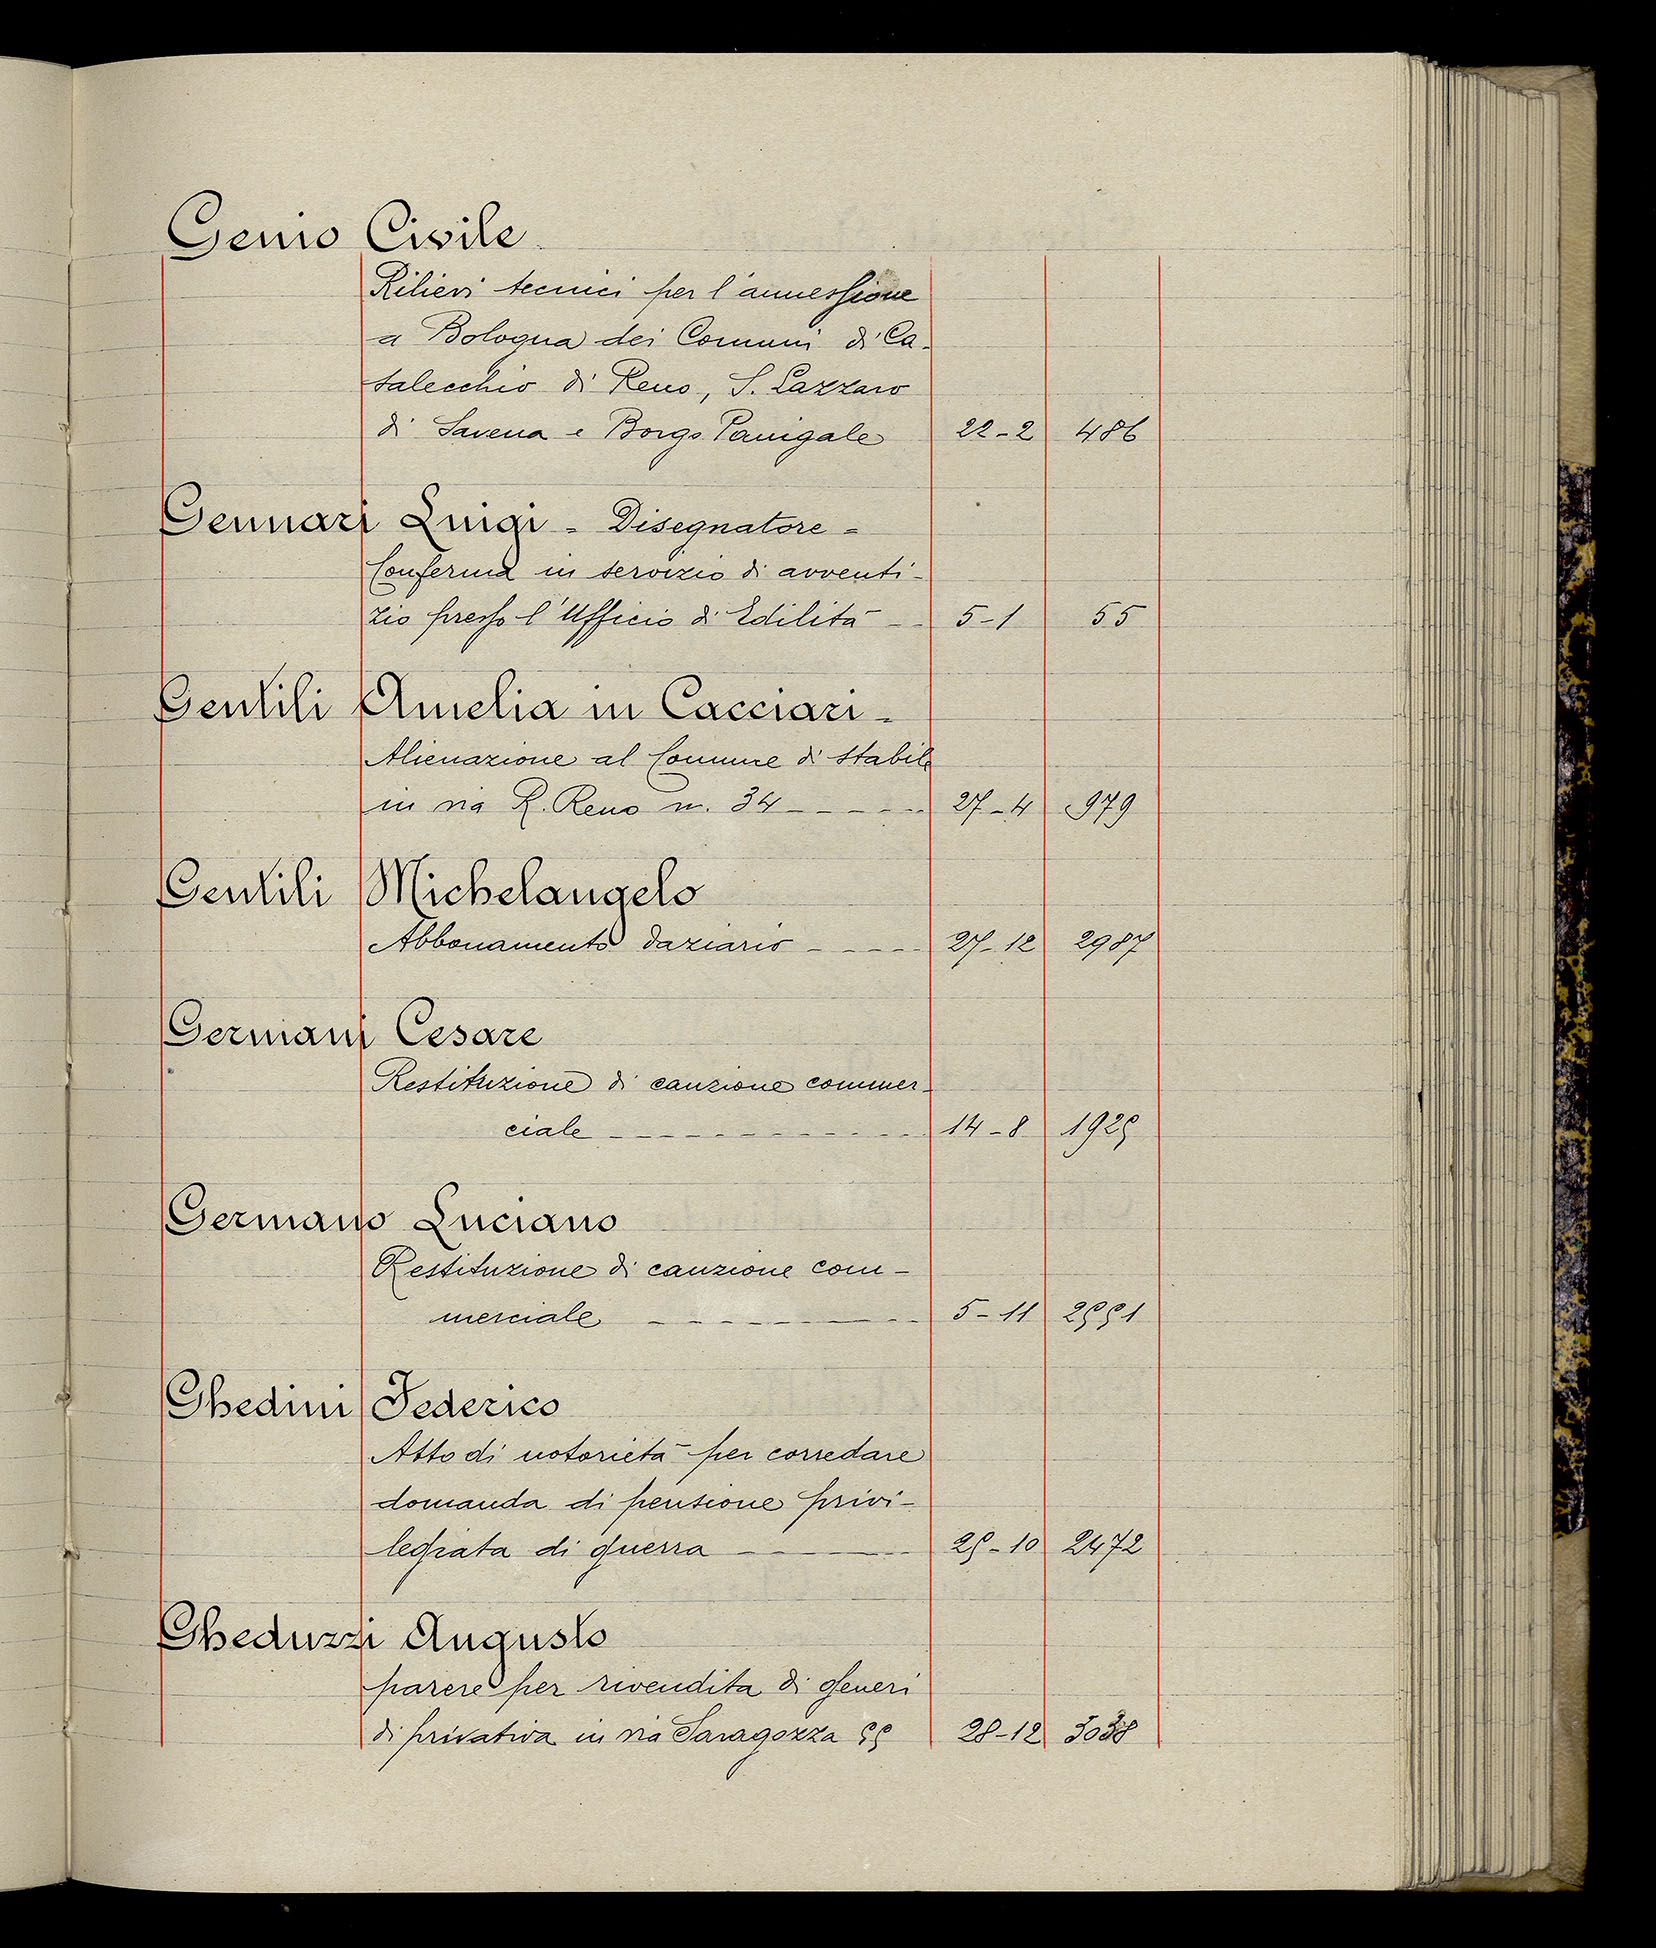 Genio Civile
Rilievi tecnici per l'annessione
a Bologna dei Comuni di Ca-
salecchio di Reno, S. Lazzaro
di Savena e Borgo Panigale 22-2 486
Gennari Luigi - Disegnatore -
Conferma in servizio di avventi-
zio presso l'Ufficio di Edilità 5-1 55
Gentili Amelia in Cacciari -
Alienazione al Comune di stabile
in via R. Reno n. 34 27-4 979
Gentili Michelangelo
Abbonamento daziario 27-12 2987
Germani Cesare
Restituzione di cauzione commer-
ciale 14-8
Germano Luciano
Restituzione di cauzione com-
merciale 5-11
Ghedini Federico
Atto di notorietà per corredare
domanda di pensione privi-
legiata di guerra 2472
Gheduzzi Augusto
parere per rivendita di generi
di privativa in via Saragozza 28-12 3038